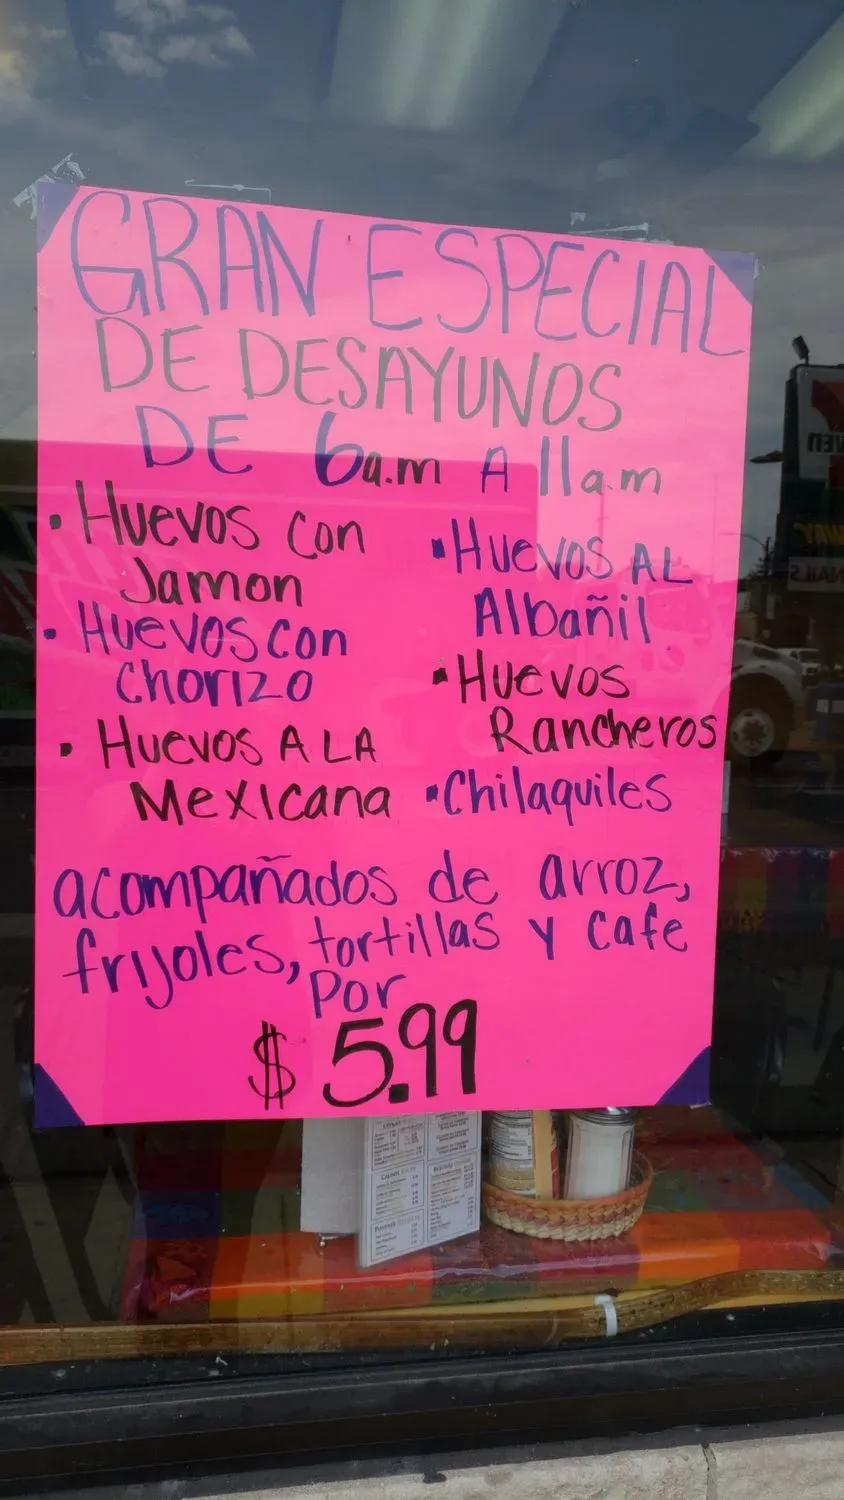 GRAN ESPECIAL
DE DESAYUNOS
DE 6a.m A 11a.m
• Huevos con
Jamon
• Huevos con
Chorizo
• Huevos A LA
Mexicana
• Huevos AL
Albañil
• Huevos
Rancheros
• Chilaquiles
acompañados de arroz,
frijoles, tortillas y cafe
por
$ 5.99